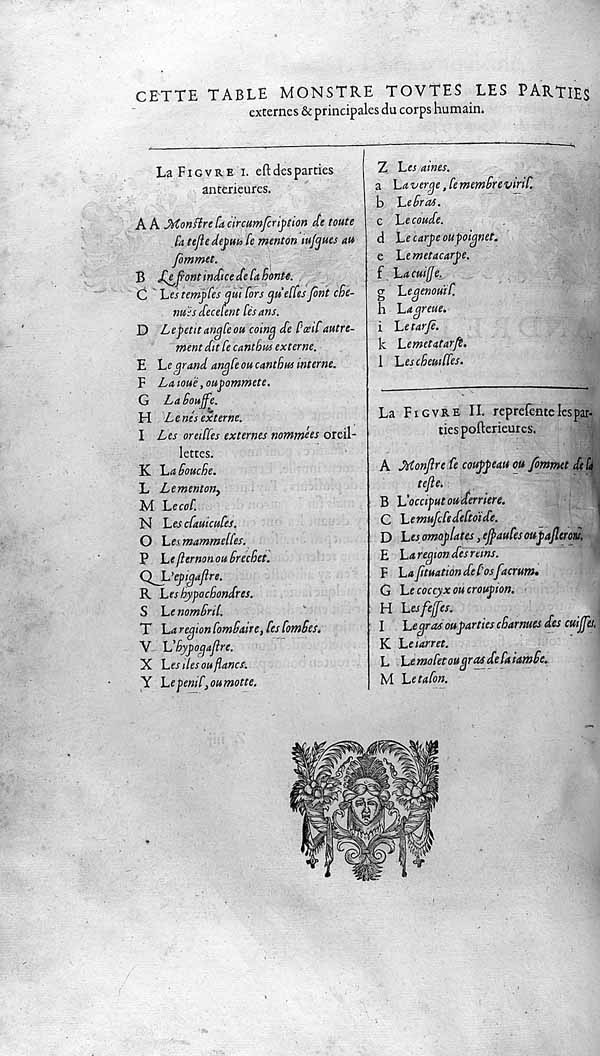 CETTE TABLE MONSTRE TOVTES LES PARTIES
externes & principales du corps humain.
La FIGVRE I. est des parties
anterieures.
A A Monstre la circumscription de toute
la teste depuis le menton iusques au
sommet.
B Le front indice de la honte.
C Les temples qui lors qu'elles sont che-
nues decelent les ans.
D Le petit angle ou coing de l'œil autre-
ment dit le canthus externe.
E Le grand angle ou canthus interne.
F La iouë, ou pommete.
G La bouffe.
H Le nés externe.
I Les oreilles externes nommées oreil-
lettes.
K La bouche.
L Le menton,
M Le col.
N Les clauicules.
O Les mammelles.
P Le sternon ou brechet.
Q L'epigastre.
R Les hypochondres.
S Le nombril.
T La region lombaire, les lombes.
V L'hypogastre.
X Les iles ou flancs.
Y Le penil, ou motte.
Z Les aines.
a La verge, le membre viril.
b Le bras.
c Le coude.
d Le carpe ou poignet.
e Le metacarpe.
f La cuisse.
g Le genouil.
h La greue.
i Le tarse.
k Le metatarse.
l Les cheuilles.
La FIGVRE II. represente les par-
ties posterieures.
A Monstre le couppeau ou sommet de la
teste.
B L'occiput ou derriere.
C Le muscle deltoïde.
D Les omoplates, espaules ou paslerons.
E La region des reins.
F La situation de l'os sacrum.
G Le coccyx ou croupion.
H Les fesses.
I Le gras ou parties charnues des cuisses.
K Le iarret.
L Le molet ou gras de la iambe.
M Le talon.